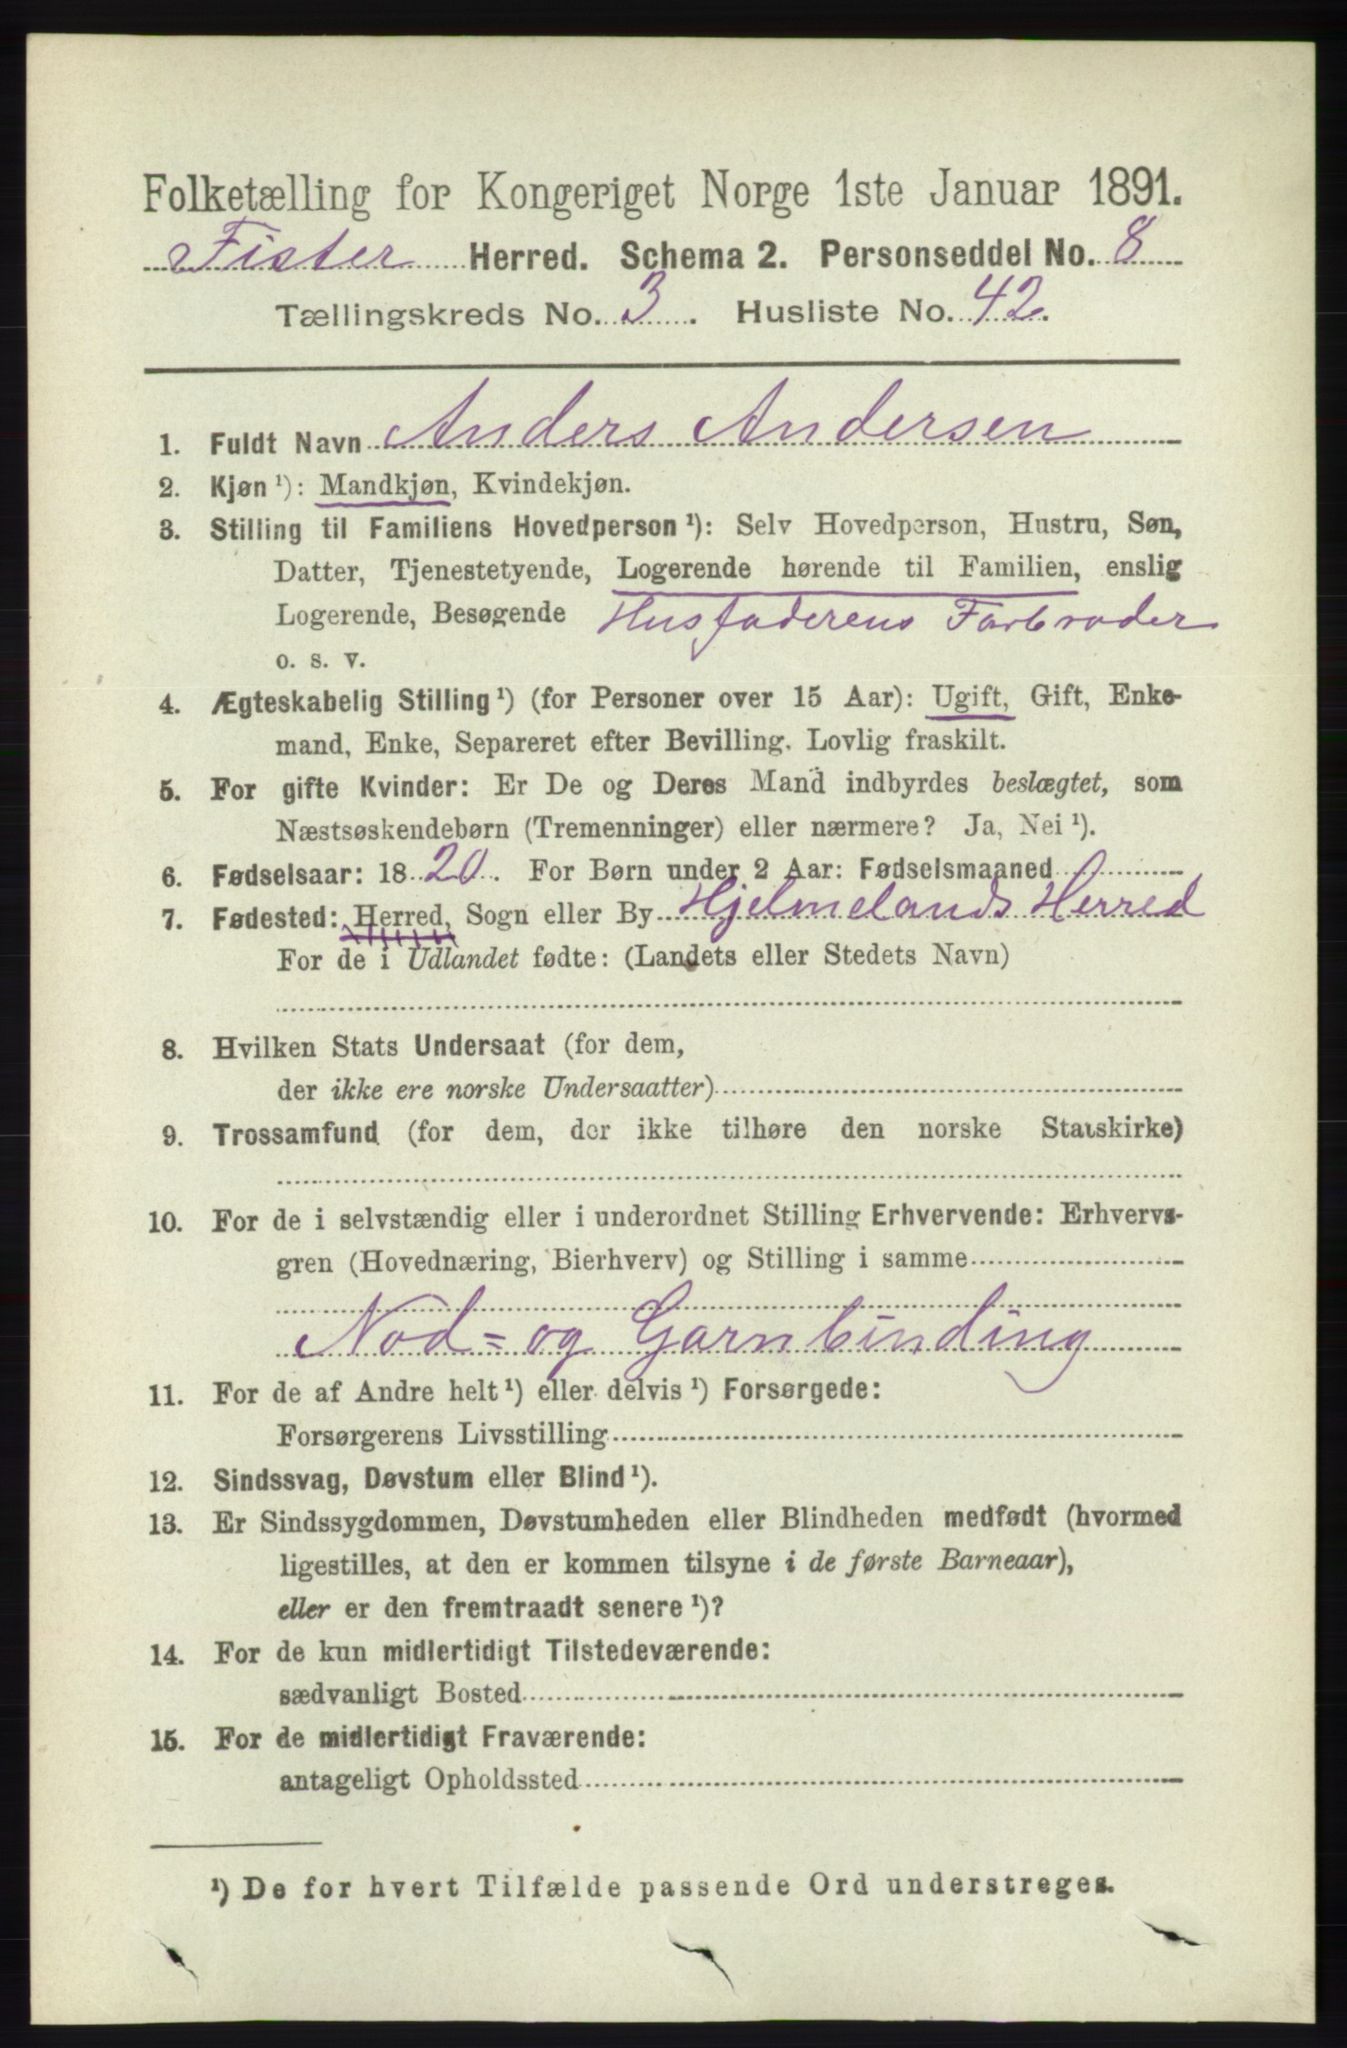 Folketælling for Kongeriget Norge 1ste Januar 1891.
Fister Herred. Schema 2. Personseddel No. 8
Tællingskreds No. 3. Husliste No. 42.
1. Fuldt Navn Anders Andersen
2. Kjøn ¹): Mandkjøn, Kvindekjøn.
3. Stilling til Familiens Hovedperson ¹): Selv Hovedperson, Hustru, Søn,
Datter, Tjenestetyende, Logerende hørende til Familien, enslig
Logerende, Besøgende Husfaderens Farbroder
o. s. v.
4. Ægteskabelig Stilling ¹) (for Personer over 15 Aar): Ugift, Gift, Enke-
mand, Enke, Separeret efter Bevilling. Lovlig fraskilt.
5. For gifte Kvinder: Er De og Deres Mand indbyrdes beslægtet, som
Næstsøskendebørn (Tremenninger) eller nærmere? Ja, Nei ¹).
6. Fødselsaar: 18 20. For Børn under 2 Aar: Fødselsmaaned
7. Fødested: Herred, Sogn eller By Hjelmelands Herred
For de i Udlandet fødte: (Landets eller Stedets Navn)
8. Hvilken Stats Undersaat (for dem,
der ikke ere norske Undersaatter)
9. Trossamfund (for dem, der ikke tilhøre den norske Statskirke)
10. For de i selvstændig eller i underordnet Stilling Erhvervende: Erhvervs-
gren (Hovednæring, Bierhverv) og Stilling i samme
Nod= og Garnbinding
11. For de af Andre helt ¹) eller delvis ¹) Forsørgede:
Forsørgerens Livsstilling
12. Sindssvag, Døvstum eller Blind ¹).
13. Er Sindssygdommen, Døvstumheden eller Blindheden medfødt (hvormed
ligestilles, at den er kommen tilsyne i de første Barneaar),
eller er den fremtraadt senere ¹)?
14. For de kun midlertidigt Tilstedeværende:
sædvanligt Bosted
15. For de midlertidigt Fraværende:
antageligt Opholdssted
¹) De for hvert Tilfælde passende Ord understreges.